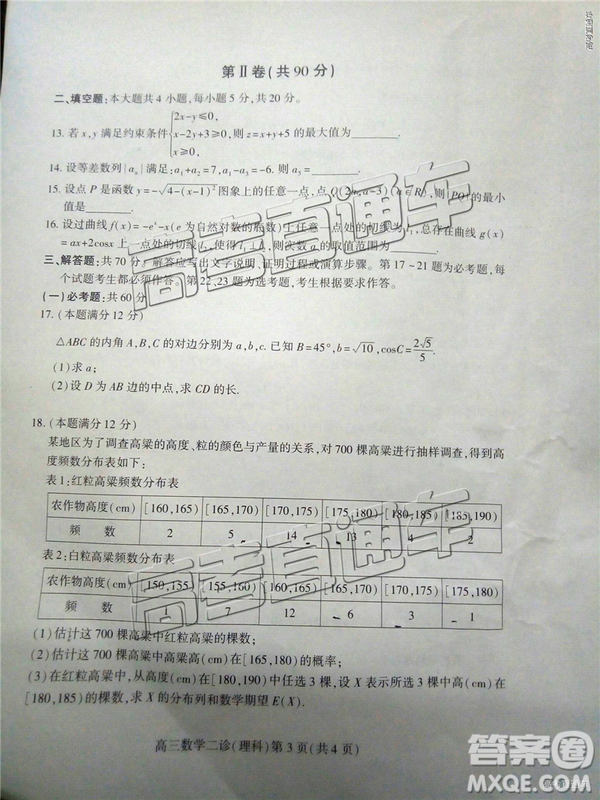 第Ⅱ卷(共90分)
二、填空题:本大题共4小题,每小题5分,共20分。
13. 若x,y满足约束条件{2x-y≤0, x-2y+3≥0, x≥0, 则z=x+y+5的最大值为______.
14. 设等差数列{aₙ}满足:a₁+a₂=7,a₁-a₃=-6. 则a₅=______.
15. 设点P是函数y=-√4-(x-1)²图象上的任意一点,点Q(2a,a-3)(a∈R),则|PQ|的最小
值是______.
16. 设过曲线f(x)=-eˣ-x(e为自然对数的底数)上任意一点处的切线l₁,总存在曲线g(x)
=ax+2cosx上一点处的切线l₂,使得l₁⊥l₂,则实数a的取值范围为______.
三、解答题:共70分. 解答应写出文字说明、证明过程或演算步骤。第17~21题为必考题,每
个试题考生都必须作答。第22、23题为选考题,考生根据要求作答。
(一)必考题:共60分
17. (本题满分12分)
△ABC的内角A,B,C的对边分别为a,b,c. 已知B=45°,b=√10,cosC=2√5/5.
(1)求a;
(2)设D为AB边的中点,求CD的长.
18. (本题满分12分)
某地区为了调查高粱的高度、粒的颜色与产量的关系,对700棵高粱进行抽样调查,得到
高度频数分布表如下:
表1:红粒高粱频数分布表
农作物高度(cm) [160,165) [165,170) [170,175) [175,180) [180,185) [185,190)
频 数 2 5 14 4 2
表2:白粒高粱频数分布表
农作物高度(cm) [150,155) [155,160) [160,165) [165,170) [170,175) [175,180)
频 数 7 12 6 3 1
(1)估计这700棵高粱中红粒高粱的棵数;
(2)估计这700棵高粱中高粱高(cm)在[165,180)的概率;
(3)在红粒高粱中,从高度(cm)在[180,190)中任选3棵,设X表示所选3棵中高(cm)在
[180,185)的棵数,求X的分布列和数学期望E(X).
高三数学二诊(理科)第3页(共4页)
高考直通车
高考直通车
答案卷